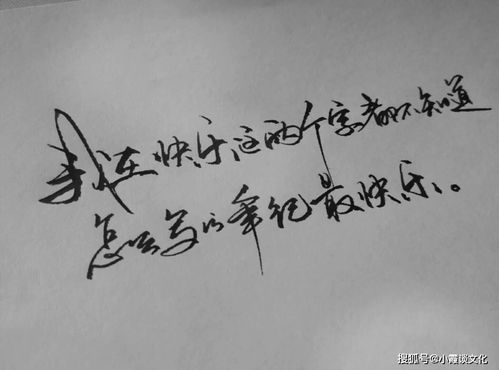 我在快乐这两个字都不知道
怎么写的年纪最快乐。
搜狐号@小霞谈文化